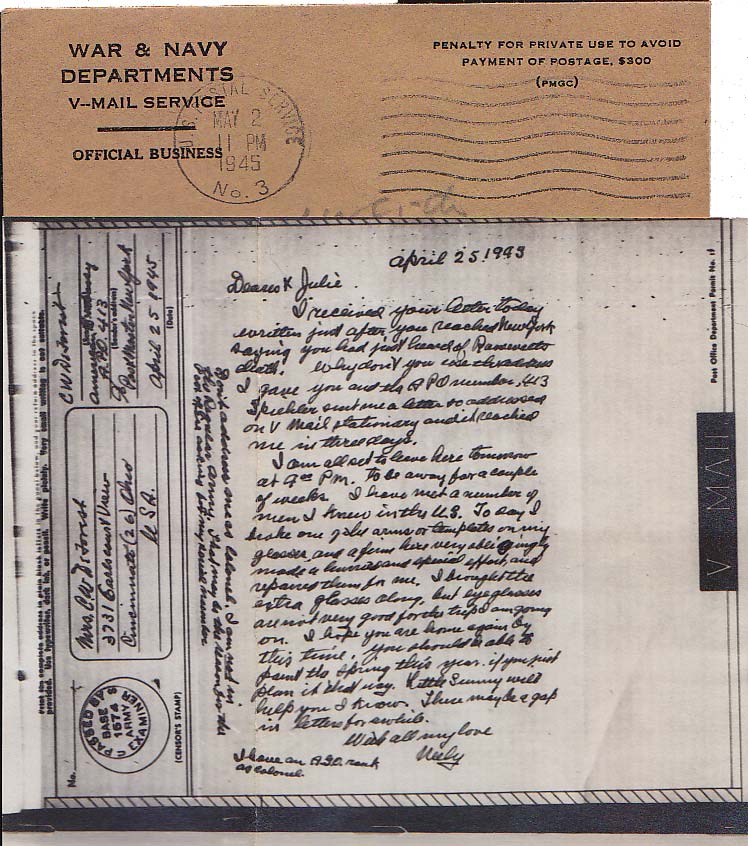 WAR & NAVY
DEPARTMENTS
V--MAIL SERVICE
OFFICIAL BUSINESS
U.S. POSTAL SERVICE
MAY 2
11 PM
1945
No. 3
PENALTY FOR PRIVATE USE TO AVOID
PAYMENT OF POSTAGE, $300
(PMGC)
Print the complete address in plain block letters in the
provided. Use typewriter, dark ink, or pencil. Write plainly. Very small writing is not suitable.
No.
PASSED BY
BASE
1574
ARMY
EXAMINER
(CENSOR'S STAMP)
Mrs. C W DeForest
3731 Earls Court View
Cincinnati (26) Ohio
U.S.A.
C W DeForest
American Embassy
A.P.O. 413
(Sender's address)
% Post Master New York
April 25 1945
(Date)
Don't address me as Colonel. I am not in
the Regular army.
April 25 1945
Dearest Julie
I received your letter today
written just after you reached New York
saying you had just heard of Roosevelts
death. Why don't you use the address
I gave you and the A P O number, 413
sent me a letter so addressed
on V Mail stationary and it reached
me in three days.
I am all set to leave here tomorrow
at 9 00 P.M. to be away for a couple
of weeks. I have met a number of
men I knew in the U.S. To day I
broke one of the arms or templates on my
glasses and a firm here very obligingly
made a hurried and special effort, and
repaired them for me. I brought the
extra glasses along, but eye glasses
are not very good for the trip I am going
on. I hope you are home again by
this time. you should be able to
paint the Spring this year if you just
plan it that way. Little Sunny will
help you I know. There may be a gap
in letters for awhile.
With all my love
Neely
I have an rank
as colonel
Post Office Department Permit No. 1
V MAIL